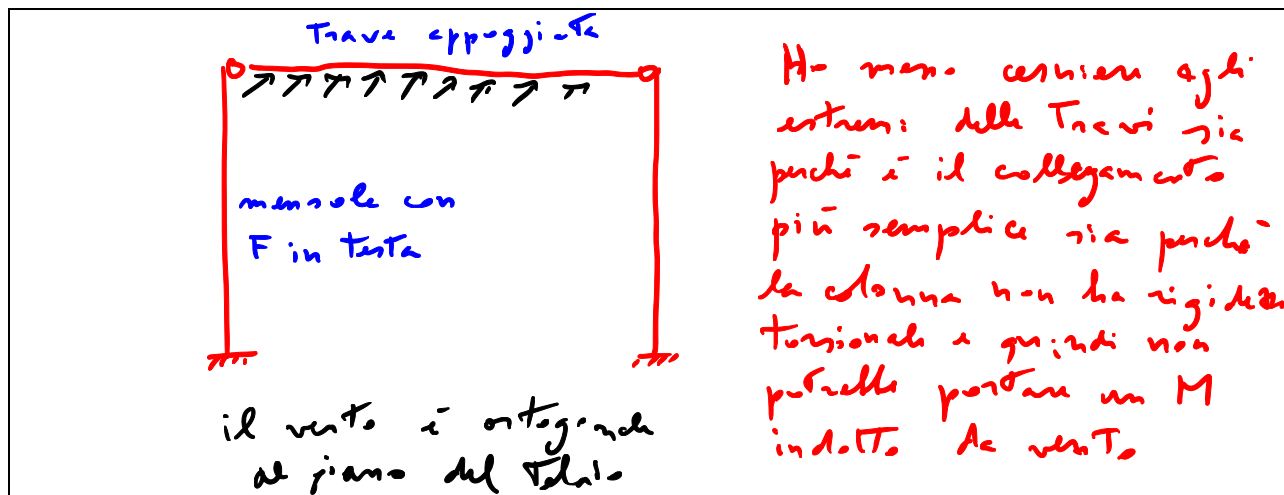 Trave appoggiata
mensole con
F in testa
il vento è ortogonale
al piano del telaio
Ho messo cerniere agli
estremi delle Travi sia
perchè è il collegamento
più semplice sia perchè
la colonna non ha rigidezza
torsionale e quindi non
potrebbe portare un M
indotto da vento